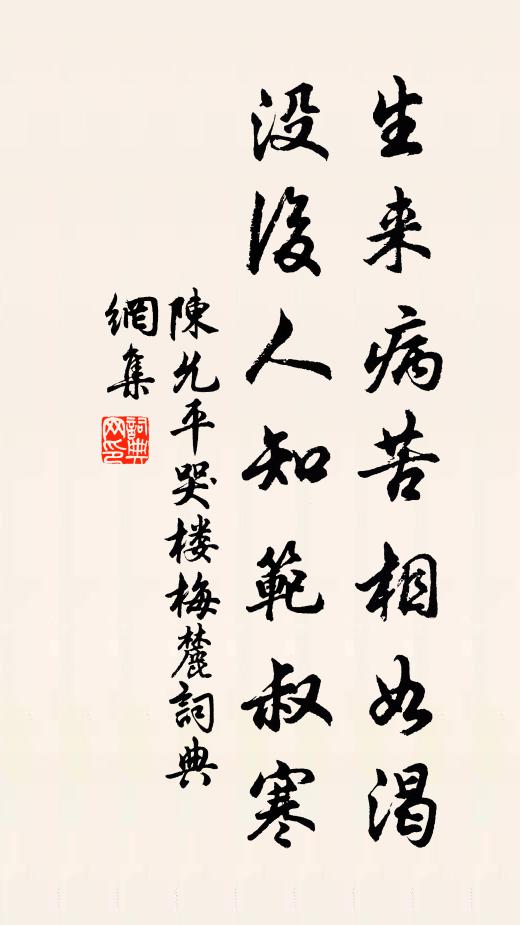 生来病苦相如渴
没后人知範叔寒
陳允平哭楼梅麓詞典
網集
詞典网印